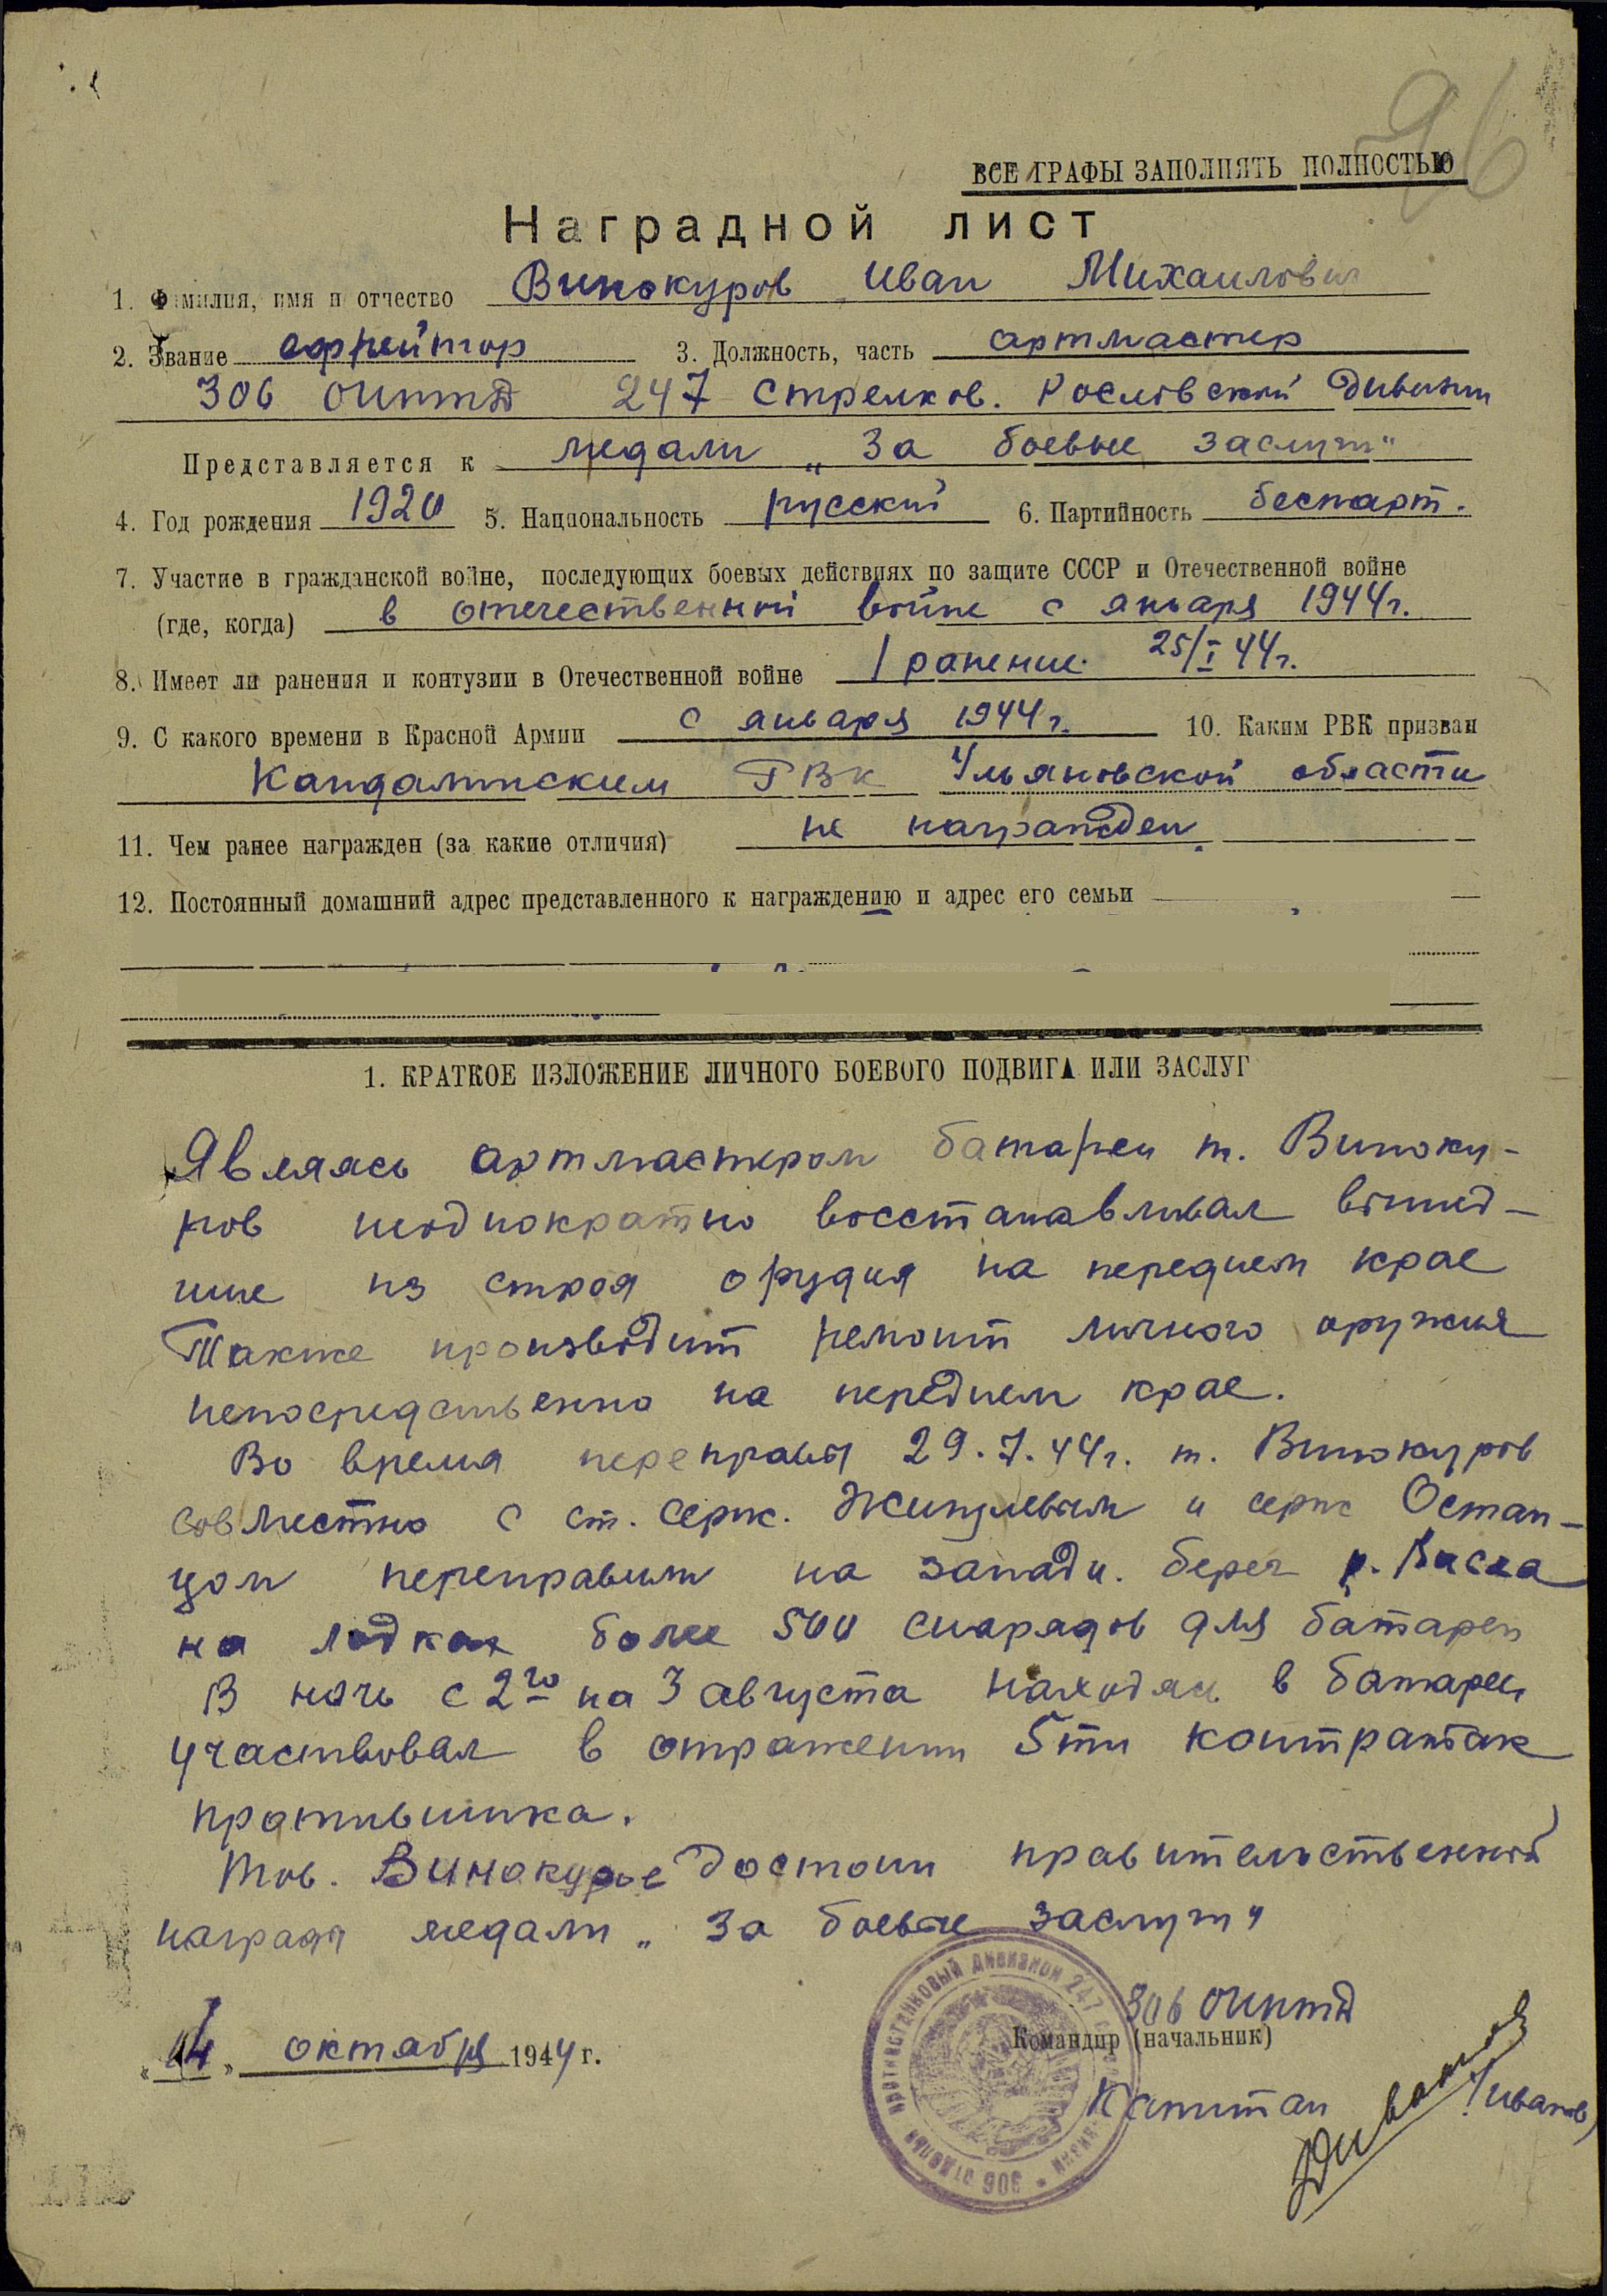 96
ВСЕ ГРАФЫ ЗАПОЛНЯТЬ ПОЛНОСТЬЮ
Наградной лист
1. Фамилия, имя и отчество Винокуров Иван Михаилович
2. Звание ефрейтор 3. Должность, часть артмастер
306 ОИПТД 247 Стрелков. Рославской Дивизии
Представляется к медали „За боевые заслуги"
4. Год рождения 1920 5. Национальность русский 6. Партийность беспарт.
7. Участие в гражданской войне, последующих боевых действиях по защите СССР и Отечественной войне
(где, когда) в отечественной войне с января 1944г.
8. Имеет ли ранения и контузии в Отечественной войне 1 ранение 25/I 44г.
9. С какого времени в Красной Армии с января 1944г. 10. Каким РВК призван
РВК Ульяновской области
11. Чем ранее награжден (за какие отличия) не награжден
12. Постоянный домашний адрес представленного к награждению и адрес его семьи
1. КРАТКОЕ ИЗЛОЖЕНИЕ ЛИЧНОГО БОЕВОГО ПОДВИГА ИЛИ ЗАСЛУГ
Являясь артмастером батареи т. Виноку-
ров неоднократно восстанавливал вышед-
шие из строя орудия на переднем крае
Также производит ремонт личного оружия
непосредственно на переднем крае.
Во время переправы 29.7.44г. т. Винокуров
совместно с ст. серж. и серж Остап-
цом переправили на западн. берег р. Висла
на лодках более 500 снарядов для батареи
В ночь с 2го на 3 августа находясь в батареи
участвовал в отражении 5ти контратак
противника.
Тов. Винокуров достоин правительственной
награды медали „За боевые заслуги"
306 ОИПТД
Командир (начальник)
„14" октября 1944 г.
Капитан /Иванов/
306 отдельн противотанковый дивизион 247